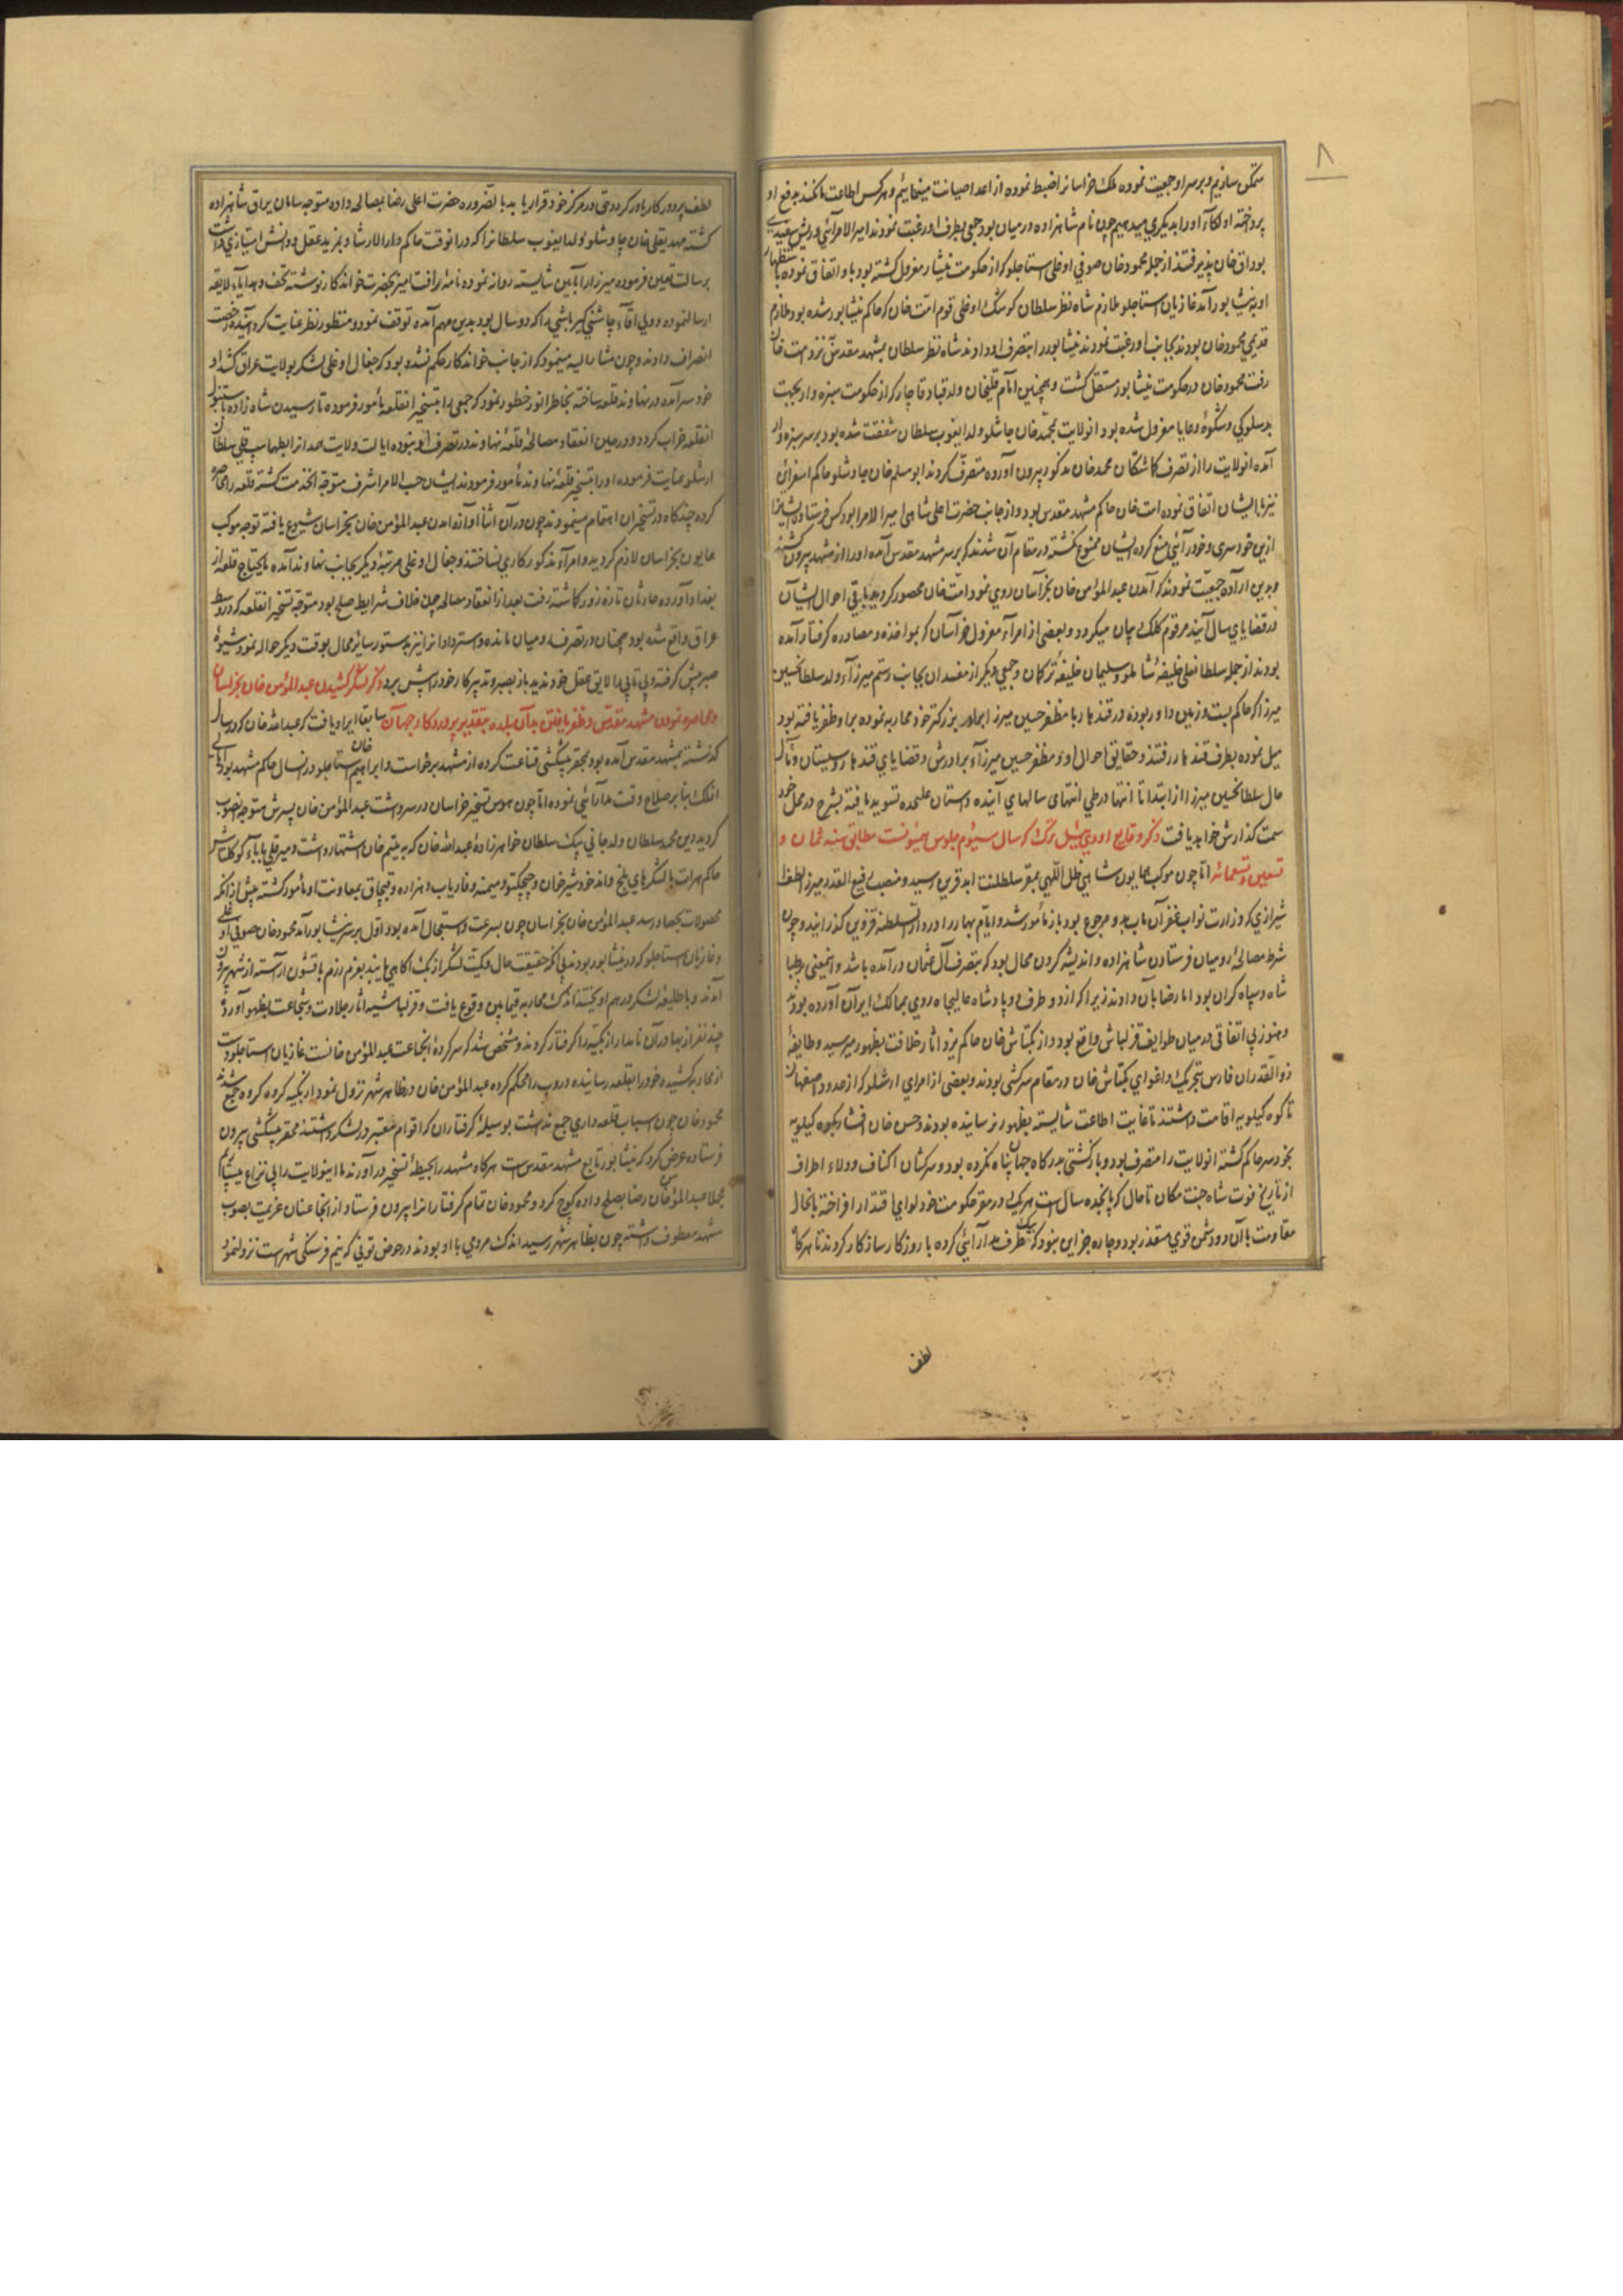 ۸
متمکن سازیم و بر سر او جمعیت نموده ملک خراسانرا ضبط نموده از اعدا صیانت مینمائیم و هر کس اطاعت ما نکند بدفع او
پرداخته اولکاء او را بدیکری میدهیم چون نام شاهزاده در میان بود جمعی بطرف او رغبت نمودند امیر الامرائی و ریش سفیدی
بوداق خان پذیرفتند از جمله محمود خان صوفی اوغلی استاجلو که از حکومت نیشابور معزول کشته بود با او اتفاق نموده باستظهار
او به نیشابور آمد غازیان استاجلو ملازم شاه نظر سلطان کوسک اوغلی قوم امت خان که حاکم نیشابور شده بود ملازم
قدیمی محمود خان بودند بجانب او رغبت نمودند نیشابور را بتصرف او دادند شاه نظر سلطان بمشهد مقدس نزد امت خان
رفت محمود خان در حکومت نیشابور مستقل کشت و همچنین امام قلیخان ولد قباد قاجار که از حکومت سبزه وار بجهت
بد سلوکی و شکوه رعایا معزول شده بود انولایت بمحمد خان جاشلو ولد ایغوب سلطان شفقت شده بود بر سر سبزه وار
آمده انولایت را از تصرف کماشتکان محمد خان مذکور بیرون آورده متصرف کردند ابو مسلم خان چاوشلو حاکم اسفراین
نیز با ایشان اتفاق نموده امت خان حاکم مشهد مقدس بود و از جانب حضرت اعلی شاهی امیر الامرا بود کس فرستاده ایشانرا
ازین خود سری و خود رآئی منع کرده ایشان ممنوع نکشته در مقام آن شدند که بر سر مشهد مقدس آمده او را از مشهد بیرون کنند
و بدین اراده جمعیت نمودند که آمدن عبد المؤمن خان بخراسان روی نمود امت خان محصور کردید باقی احوال ایشان
در قضایای سال آینده مرقوم کلک بیان میکردد و بعضی از امراء معزول خراسان که بمواخذه و مصادره کرفتار آمده
بودند از جمله سلطانعلی خلیفه شاملو و سلیمان خلیفه ترکمان و جمعی دیکر از مفسدان بجانب رستم میرزاء ولد سلطان حسین
میرزا که حاکم بست و زمین داور بود و در قندهار با مظفر حسین میرزا برادر بزرکتر خود محاربه نموده بر او ظفر یافته بود
میل نموده بطرف قندهار رفتند و حقایق احوال او و مظفر حسین میرزاء برادرش و قضایای قندهار و سیستان و مآل
حال سلطان حسین میرزا از ابتدا تا انتها در طی انتهای سالهای آینده داستان علیحده تسوید یافته بشرح در محل خود
سمت کذارش خواهد یافت ذکر وقایع اودی ئیل ترک که سال سیوم جلوس همیونست مطابق سنه ثمان و
تسعین و تسعمائه اما چون موکب همایون شاهی ظل اللهی بمقر سلطنت ابد قرین رسید و منصب رفیع القدر میرزا لطف الله
شیرازی که وزارت نواب غفران مآب بدو مرجوع بود باز مأمور شد و ایام بهار را در دار السلطنه قزوین کذرانید و چون
شرط مصالحه رومیان فرستادن شاهزاده و اندیشه کردن محال بود که بتصرف آل عثمان درآمده باشد و اینمعنی بر طبا
شاه و سپاه کران بود اما رضا بآن دادند زیرا که از دو طرف دو پادشاه عالیجاه روی بممالک ایران آورده بودند
و هنوز بی اتفاقی در میان طوایف قزلباش واقع بود و از بکتاش خان حاکم یزد آثار خلافت بظهور میرسید و طایفه
ذوالقدران فارس بتحریک و اغوای بکتاش خان در مقام سرکشی بودند و بعضی از امرای ارشلو که از حدود اصفهان
تا کوه کیلویه اقامت داشتند تا غایت اطاعت شایسته بظهور نرسانیده بودند و حسن خان افشار بکوه کیلویه
بخود سر حاکم کشته انولایت را متصرف بود و بازکشتی بدرکاه جهان پناه نکرده بود و سرکشان اکناف و ولاء اطراف
از تاریخ فوت شاه جنت مکان تا حال که پانجده سال است هر یک در مقر حکومت خود لوای اقتدار افراخته بالحال
مقاومت با آن دو دشمن قوی متعذر بود و چاره جز این نبود که یک طرف مدارآئی کرده با روزکار سازکار کردند تا هرکاه
لطف
لطف پروردکار یاور کردد حق در مرکز خود قرار یابد بالضروره حضرت اعلی رضا بمصالحه داده متوجه سامان یراق شاهزاده
کشته مهدیقلی خان چاوشلو ولد ایغوب سلطانرا که درانوقت حاکم دار الارشاد و بمزید عقل و دانش امتیازی داشت
برسالت تعیین فرموده میرزا را بآیین شایسته روانه نموده نامه رافت آمیز بحضرت خواندکار نوشته تحف و هدایاء لایقه
ارسال نموده و ولی آقاء چاشنی کیر باشی را که دو سال بود بدین مهم آمده توقف نموده و منتظور نظر عنایت کردانیده رخصت
انصراف دادند و چون مشار الیه مینمود که از جانب خواندکار حکم نشده بود که جغال اوغلی لشکر بولایت عراق کشد او
خود سر آمده در نهاوند قلعه ساخته بخاطر انور خطور نمود که جمعی را بتسخیر انقلعه مأمور فرموده تا رسیدن شاه زاده باستنبول
انقلعه خراب کردد و در حین انعقاد مصالحه قلعه نهاوند در تصرف او نبوده ایالت ولایت همدانرا بطهماسب قلی سلطان
ارشلو عنایت فرموده او را بتسخیر قلعه نهاوند مأمور فرمودند ایشان حسب الامر اشرف متوجه انخدمت کشته قلعه را محاصره
کرده چندکاه در تسخیر ان اهتمام مینمودند چون در آن اثنا آوازه آمدن عبد المؤمن خان بخراسان شیوع یافته توجه موکب
همایون بخراسان لازم کردید و امراء مذکور کاری نساختند و جغال اوغلی مرتبه دیکر بجانب نهاوند آمده مایحتاج قلعه از
بغداد آورده حارثان تازه زور کماشته رفت بعد از انعقاد مصالحه چون خلاف شرایط صلح بود متوجه تسخیر انقلعه که در وسط
عراق واقع شده بود همچنان در تصرف رومیان مانده و استرداد انرا نیز بدستور سایر محال بوقت دیکر حواله نمود شیوه
صبر پیش کرفته و بی تابی را لایق عقل خود ندیده باز بصبر و تدبیر کار خود را پیش برد ذکر لشکر کشیدن عبد المؤمن خان بخراسان
و محاصره نمودن مشهد مقدس و ظفر یافتن بدآن بلده بتقدیر پروردکار جهان سابقا ایراد یافت که عبد الله خان که در سال
کذشته بمشهد مقدس آمده بود بمحقر پیشکشی قناعت کرده از مشهد برخاست و ابراهیم خان استاجلو در انسال حاکم مشهد بود بالجای
انک بنا بر صلاح وقت مدارائی نموده اما چون هوس تسخیر خراسان در سر داشت عبد المؤمن خان پسرش متوجه انصوب
کردید دین محمد سلطان ولد جانی بیک سلطان خواهرزاده عبد الله خان که به یتیم خان اشتهار داشت و میر قلی باباء کوکلتاش
حاکم هرات با لشکرهای بلخ و اندخود شبرغان و چیچکتو و میمنه و فاریاب و هزاره و قبچاق بمعاونت او مأمور کشته پیش از انکه
محصولات بحصاد رسد عبد المؤمن خان بخراسان چون بسرعت و استعجال آمده بود اول بر سر نیشابور آمد محمود خان صوفی اوغلی
و غازیان استاجلو که در نیشابور بودند بی انکه حقیقت حال و کمیت لشکر ازبک آکاهی یابند بعزم رزم با قشون آراسته از شهر بیرون
آمدند و با طلیعه لشکر در هم آویختند اندک محاربه فیمابین وقوع یافت و قزلباشیه آثار جلادت و شجاعت بظهور آوردند
چند نفر از بهادرآن نامدار ازبکیه را کرفتار کردند و مشخص شد که سر کرده انجماعت عبد المؤمن خانست غازیان استاجلو دست
از محاربه کشیده خود را بقلعه رسانیده دروب را محکم کرده عبد المؤمن خان در ظاهر شهر نزول نمود ازبکیه کروه کروه جمع شدند
محمود خان چون اسباب قلعه داری جمع نداشت بوسیله کرفتاران که اقوام معتبر در لشکر داشتند محقر پیشکشی بیرون
فرستاده عرض کرد که نیشابور تابع مشهد مقدس است هرکاه مشهد را بحیطه تسخیر درآورند ما اینولایت را بی نزاع میسپاریم
مجملا عبد المؤمن خان رضا بصلح داده کوچ کرد و محمود خان تمام کرفتارانرا بیرون فرستاد و از انجا عنان عزیمت بصوب
مشهد معطوف داشته چون بظاهر شهر رسید اندک مردمی با او بودند در حوض تونی که نیم فرسکی شهر است نزول نمود